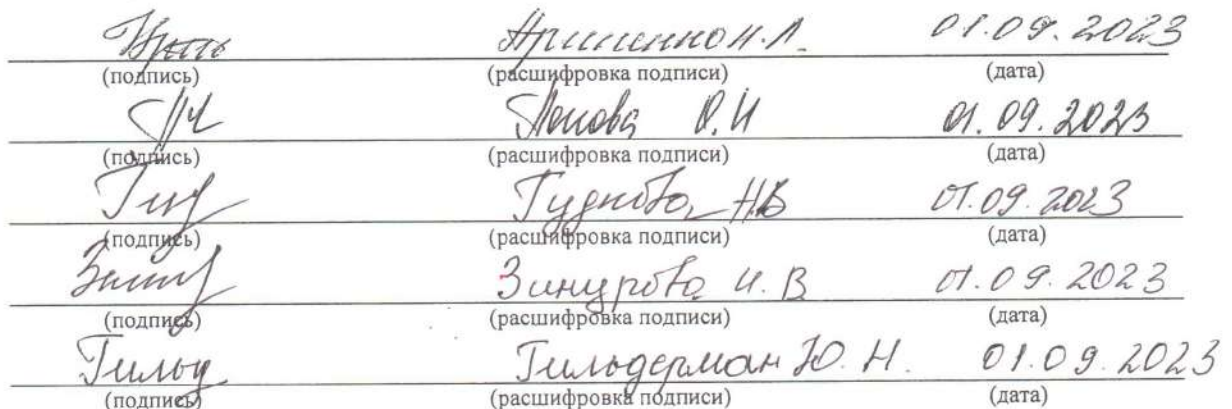 01.09.2023
(подпись) (расшифровка подписи) (дата)
Попова О.И 01.09.2023
(подпись) (расшифровка подписи) (дата)
Гуднова Н.В 01.09.2023
(подпись) (расшифровка подписи) (дата)
Зинурова И. В 01.09.2023
(подпись) (расшифровка подписи) (дата)
Гильд Гильдерман Ю. Н. 01.09.2023
(подпись) (расшифровка подписи) (дата)